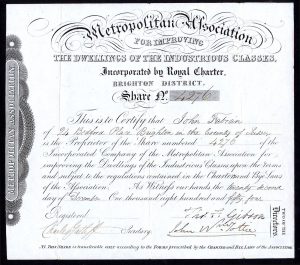 Metropolitan Association
FOR IMPROVING
THE DWELLINGS OF THE INDUSTRIOUS CLASSES,
Incorporated by Royal Charter,
BRIGHTON DISTRICT.
Share No. 4276
This is to Certify that John
of 24 Bedford Place Brighton in the County of Sussex
is the Proprietor of the Share numbered 4276 of the
Incorporated Company of the Metropolitan Association for
improving the Dwellings of the Industrious Classes, upon the terms
and subject to the regulations contained in the Charter and Bye Laws
of the Association. As Witness our hands the twenty second
day of December One thousand eight hundred and fifty four
Registered
Thos. F. Gibson
John W.
Secretary
TWO OF THE
Directors
N.B. This Share is transferable only according to the Forms prescribed by the Charter and Bye Laws of the Association.
METROPOLITAN ASSOCIATION